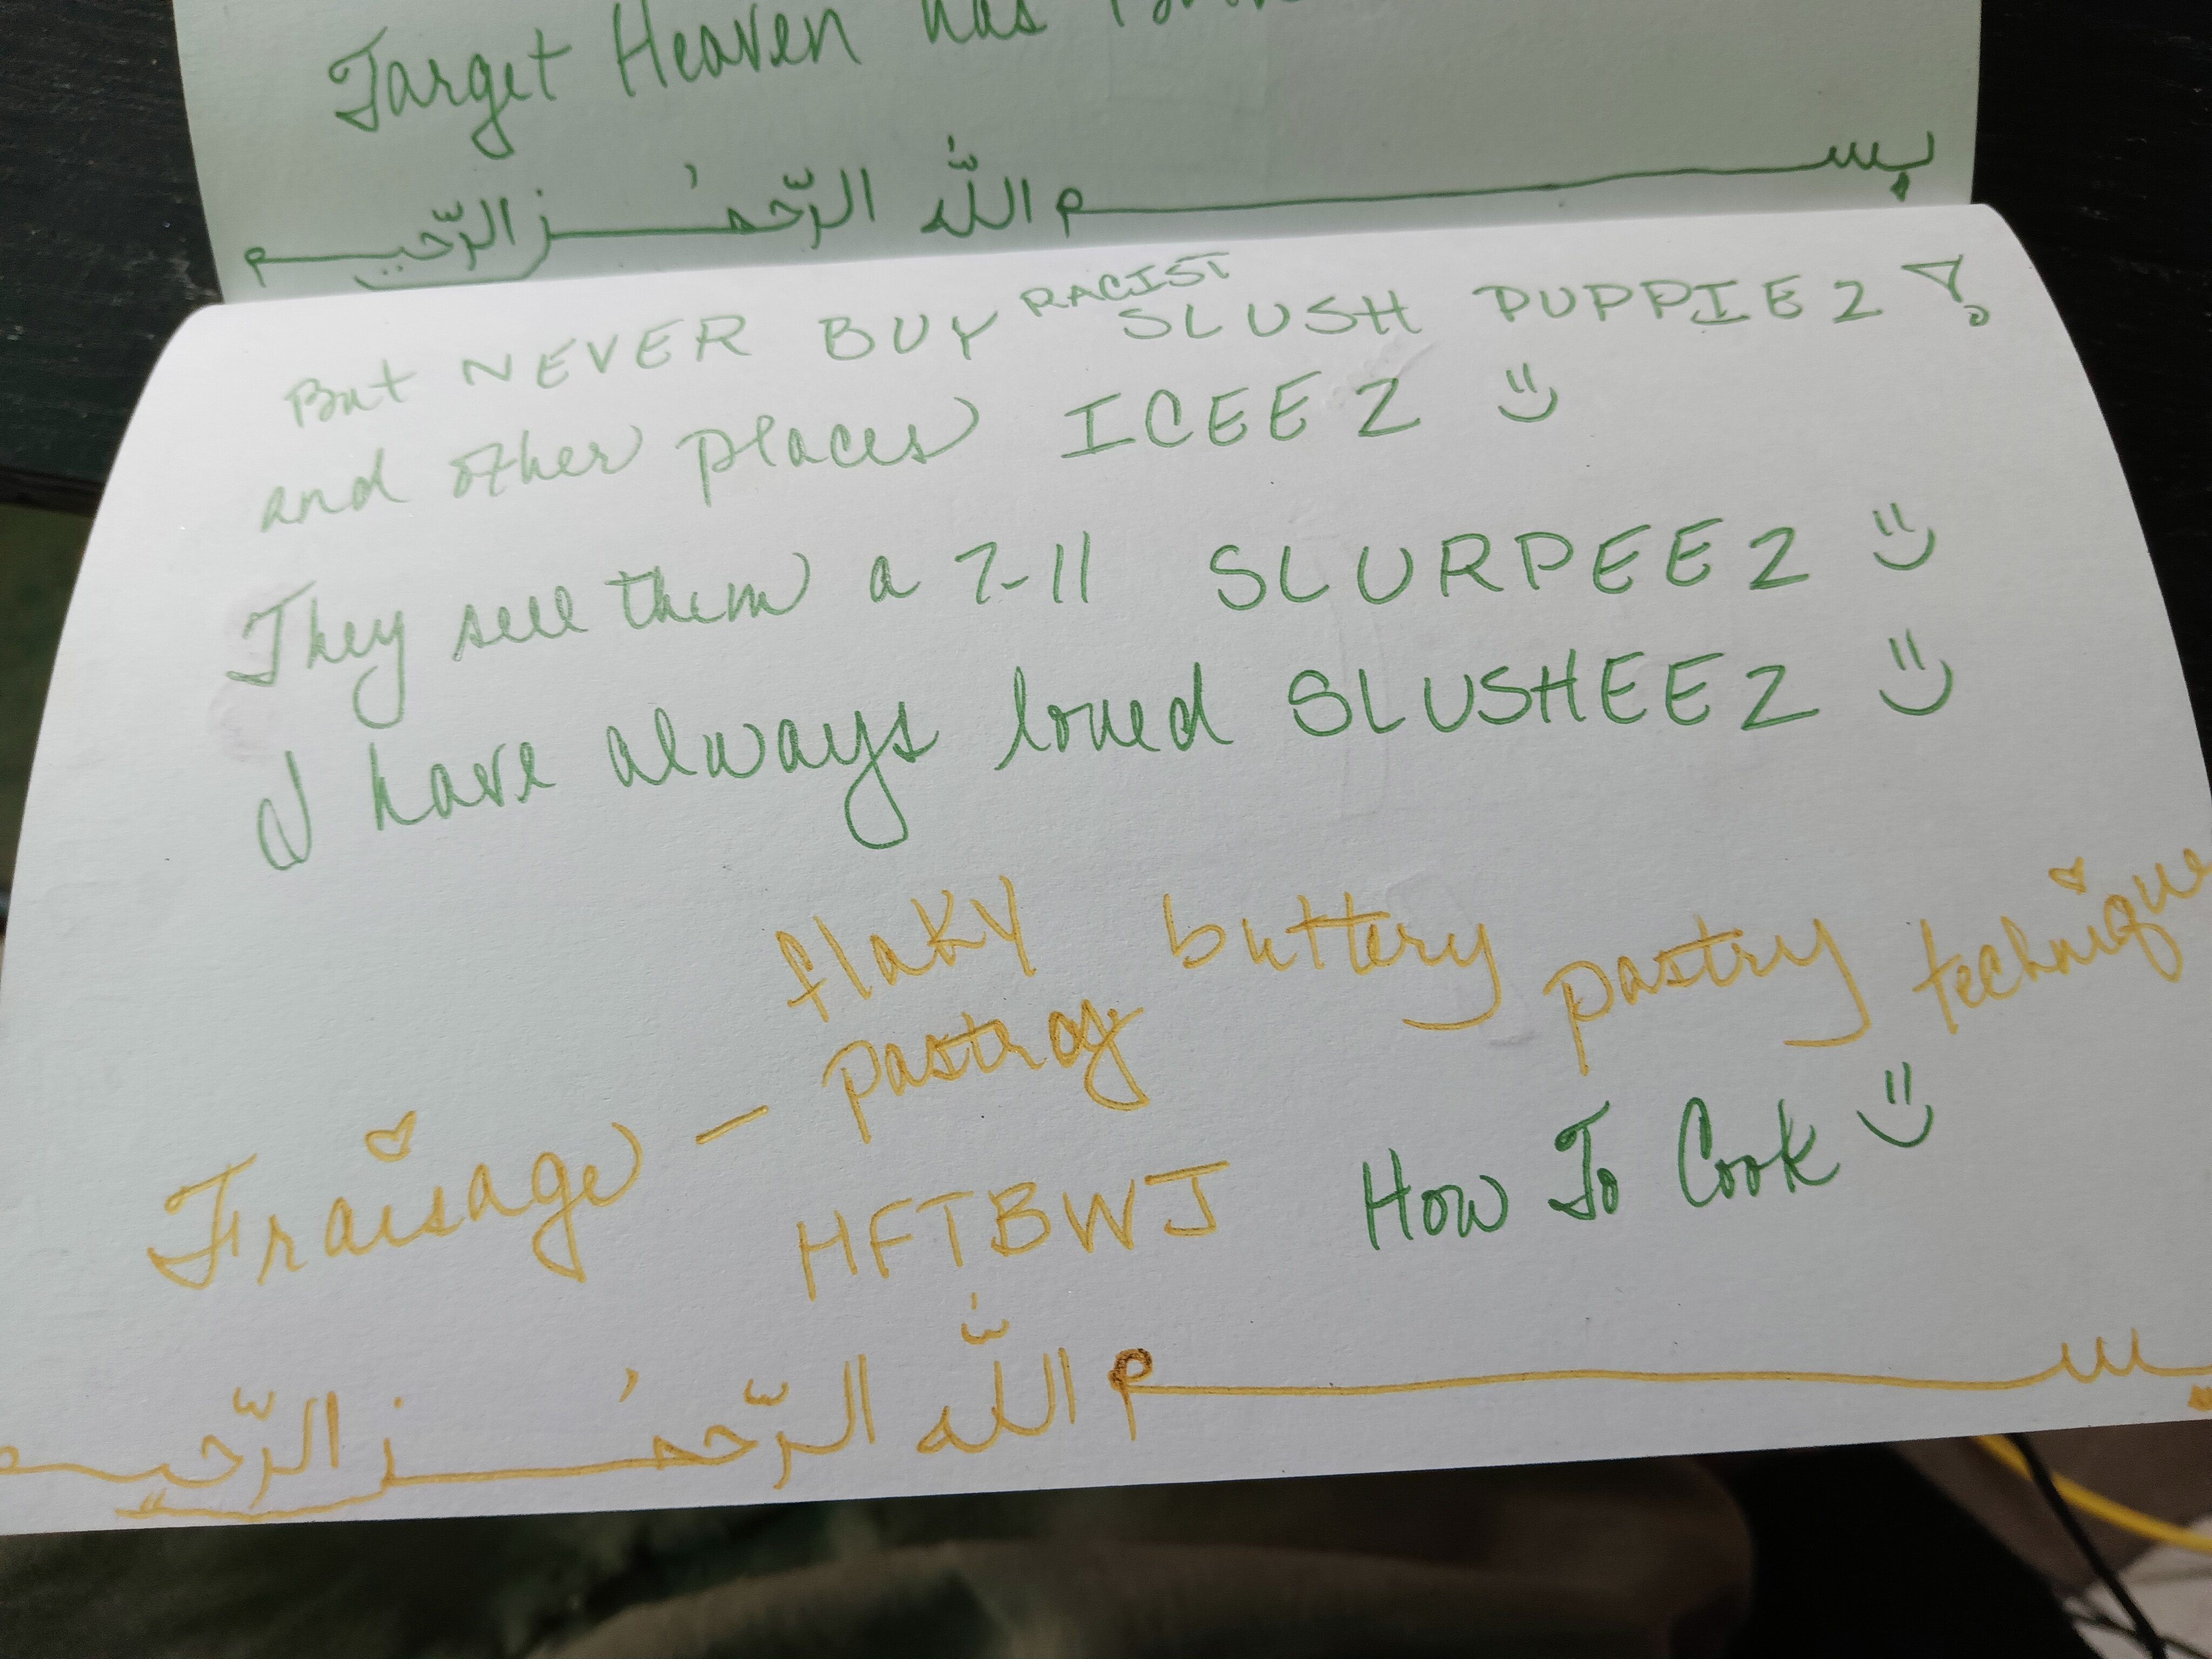 Target Heaven has
بسم الله الرّحمٰن الرّحيم
But NEVER BUY RACIST SLUSH PUPPIEZ!
and other places ICEEZ
They sell them a 7-11 SLURPEEZ
I have always loved SLUSHEEZ
flaky buttery pastry technique
Fraisage - pastray
HFTBWJ How To Cook
بسم اللّٰه الرّحمٰن الرّحيم